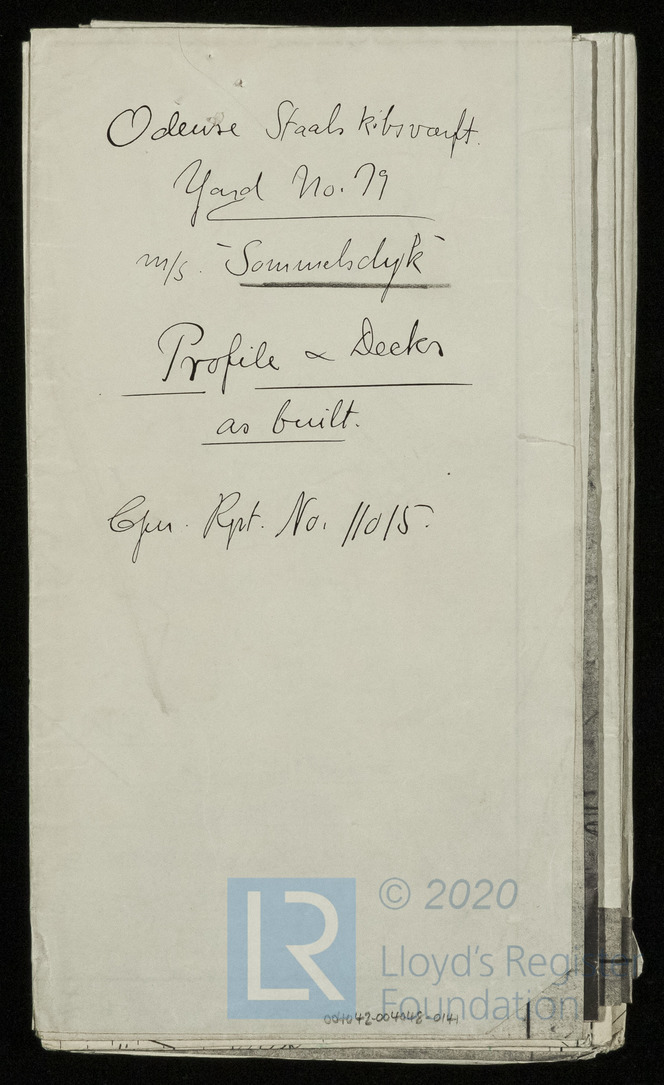 Odense Staalskibsværft.
Yard No. 79
m/s. "Sommelsdyk"
Profile & Decks
as built.
Cpn. Rpt. No. 11015.
LR
© 2020
Lloyd's Register
Foundation
004042-004048-0141